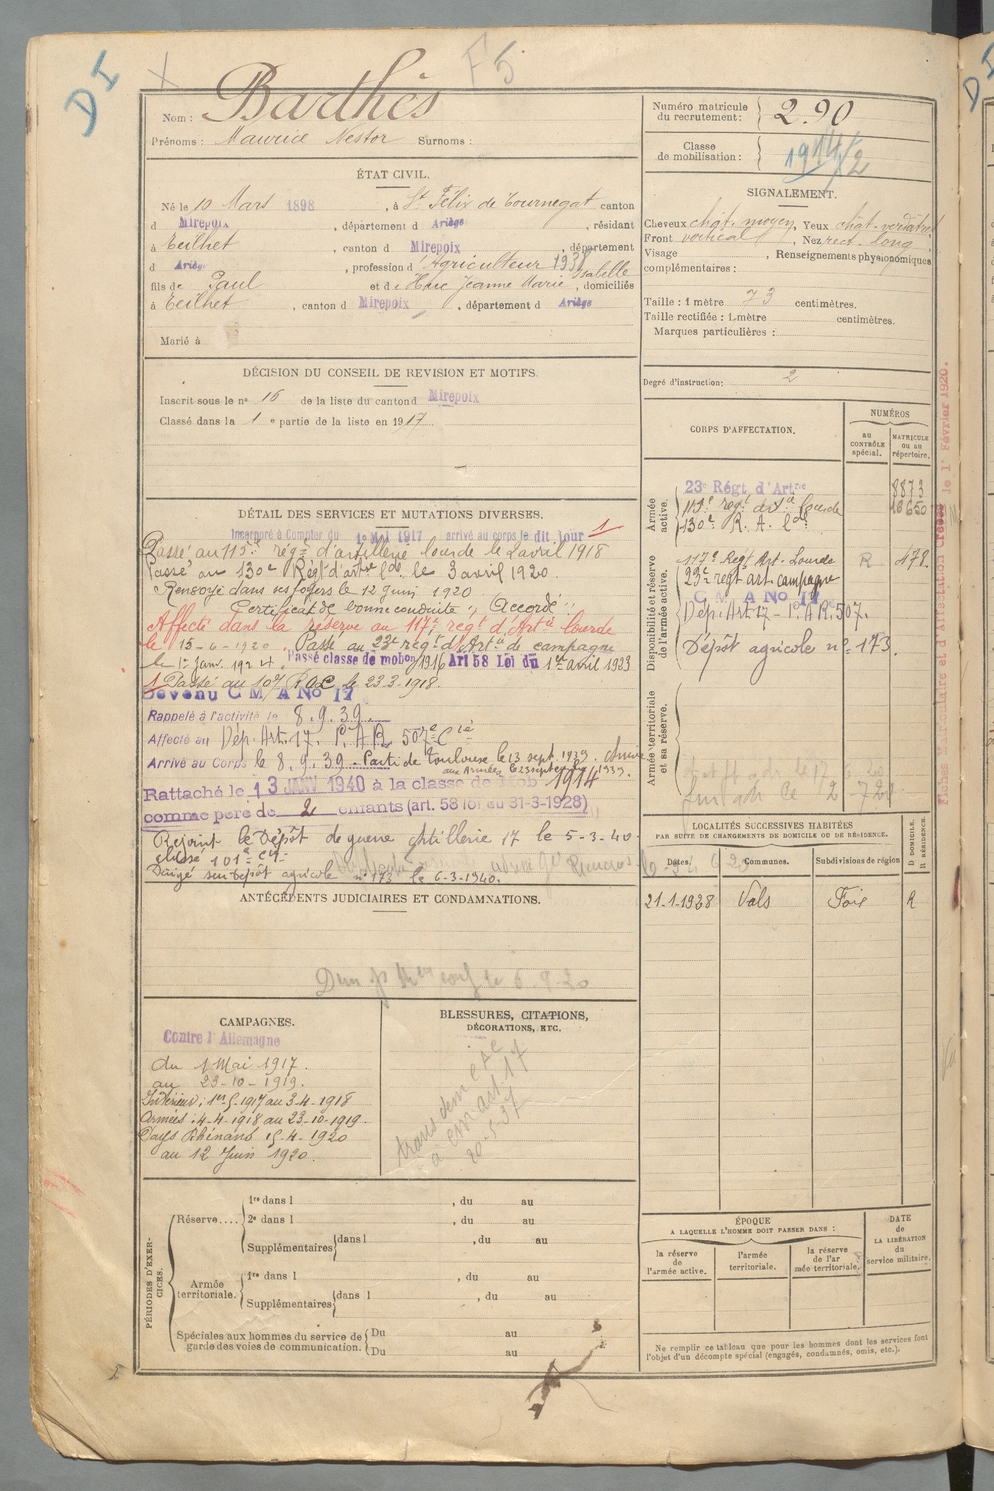 DI
F5
Nom : Barthès
Prénoms : Maurice Nestor Surnoms :
Numéro matricule du recrutement : 290
Classe de mobilisation : 1914/2
ÉTAT CIVIL.
Né le 10 Mars 1898, à St Félix de Tournegat canton
d Mirepoix, département d Ariège, résidant
à Teilhet, canton d Mirepoix, département
d Ariège, profession d'Agriculteur 1938
fils de Paul et de Huc Jeanne Marie Isabelle, domiciliés
à Teilhet, canton d Mirepoix, département d Ariège
Marié à
SIGNALEMENT.
Cheveux chât. moyen, Yeux chât. verdâtre
Front vertical, Nez rect. long
Visage , Renseignements physionomiques
complémentaires :
Taille : 1 mètre 73 centimètres.
Taille rectifiée : 1 mètre centimètres.
Marques particulières :
Degré d'instruction : 2
DÉCISION DU CONSEIL DE REVISION ET MOTIFS.
Inscrit sous le n° 16 de la liste du canton d Mirepoix
Classé dans la 1e partie de la liste en 1917
DÉTAIL DES SERVICES ET MUTATIONS DIVERSES.
Incorporé à Compter du 1er Mai 1917 arrivé au corps le dit Jour 1
Passé au 115e rég. d'artillerie lourde le 2 avril 1918
Passé au 130e Régt d'artie lde le 3 avril 1920.
Renvoyé dans ses foyers le 12 Juin 1920
Certificat de bonne conduite : "Accordé"
Affecté dans la réserve au 117e régt d'Artie lourde
le 15-6-1920. Passé au 23e régt d'Artie de campagne
le 1er Janv. 1924. Passé classe de mobon 1916 Art 58 Loi du 1er avril 1923
1 Passé au 107 R.A.L. le 23.3.1918.
Devenu C M A No 17
Rappelé à l'activité le 8.9.39
Affecté au Dép. Art. 17. P.A.R. 507e Cie
Arrivé au Corps le 8.9.39. Parti de Toulouse le 13 sept. 1939. Arrivé
aux Armées le 23 septembre 1939.
Rattaché le 13 JANV 1940 à la classe de Mob 1914
comme père de 2 enfants (art. 58 loi du 31-3-1928)
Rejoint le Dépôt de guerre Artillerie 17 le 5-3-40.
classé 101e Cie
Dirigé sur Dépôt agricole n° 173 le 6-3-1940.
CORPS D'AFFECTATION.
NUMÉROS
au CONTRÔLE spécial.
MATRICULE ou au répertoire.
Armée active.
23e Régt d'Artie 8873
115e régt art. lourde 18650
130e R. A. lde
Disponibilité et réserve de l'armée active.
117e Régt Art. Lourde R 478.
23e régt art campagne
C M A No 17
Dép. Art 17 - P.A.R. 507.
Dépôt agricole n° 173.
Armée territoriale et sa réserve.
Fiches Matriculaire et d'Affectation Créées le 1er Février 1920.
LOCALITÉS SUCCESSIVES HABITÉES
PAR SUITE DE CHANGEMENTS DE DOMICILE OU DE RÉSIDENCE.
Dates. Communes. Subdivisions de région D DOMICILE. R RÉSIDENCE.
21-1-1938 Vals Foix R
ANTÉCÉDENTS JUDICIAIRES ET CONDAMNATIONS.
CAMPAGNES.
Contre l'Allemagne
du 1 Mai 1917.
au 23-10-1919.
Intérieur : 1er-5-1917 au 3-4-1918
Armées : 4-4-1918 au 23-10-1919.
Pays Rhénans 15-4-1920
au 12 Juin 1920.
BLESSURES, CITATIONS,
DÉCORATIONS, ETC.
20-5-37
PÉRIODES D'EXERCICES.
Réserve....
1re dans l , du au
2e dans l , du au
Supplémentaires dans l , du au
Armée territoriale.
1re dans l , du au
Supplémentaires dans l , du au
Spéciales aux hommes du service de garde des voies de communication.
Du au
Du au
ÉPOQUE
A LAQUELLE L'HOMME DOIT PASSER DANS :
la réserve de l'armée active.
l'armée territoriale.
la réserve de l'armée territoriale.
DATE de LA LIBÉRATION du service militaire.
Ne remplir ce tableau que pour les hommes dont les services font
l'objet d'un décompte spécial (engagés, condamnés, omis, etc.).